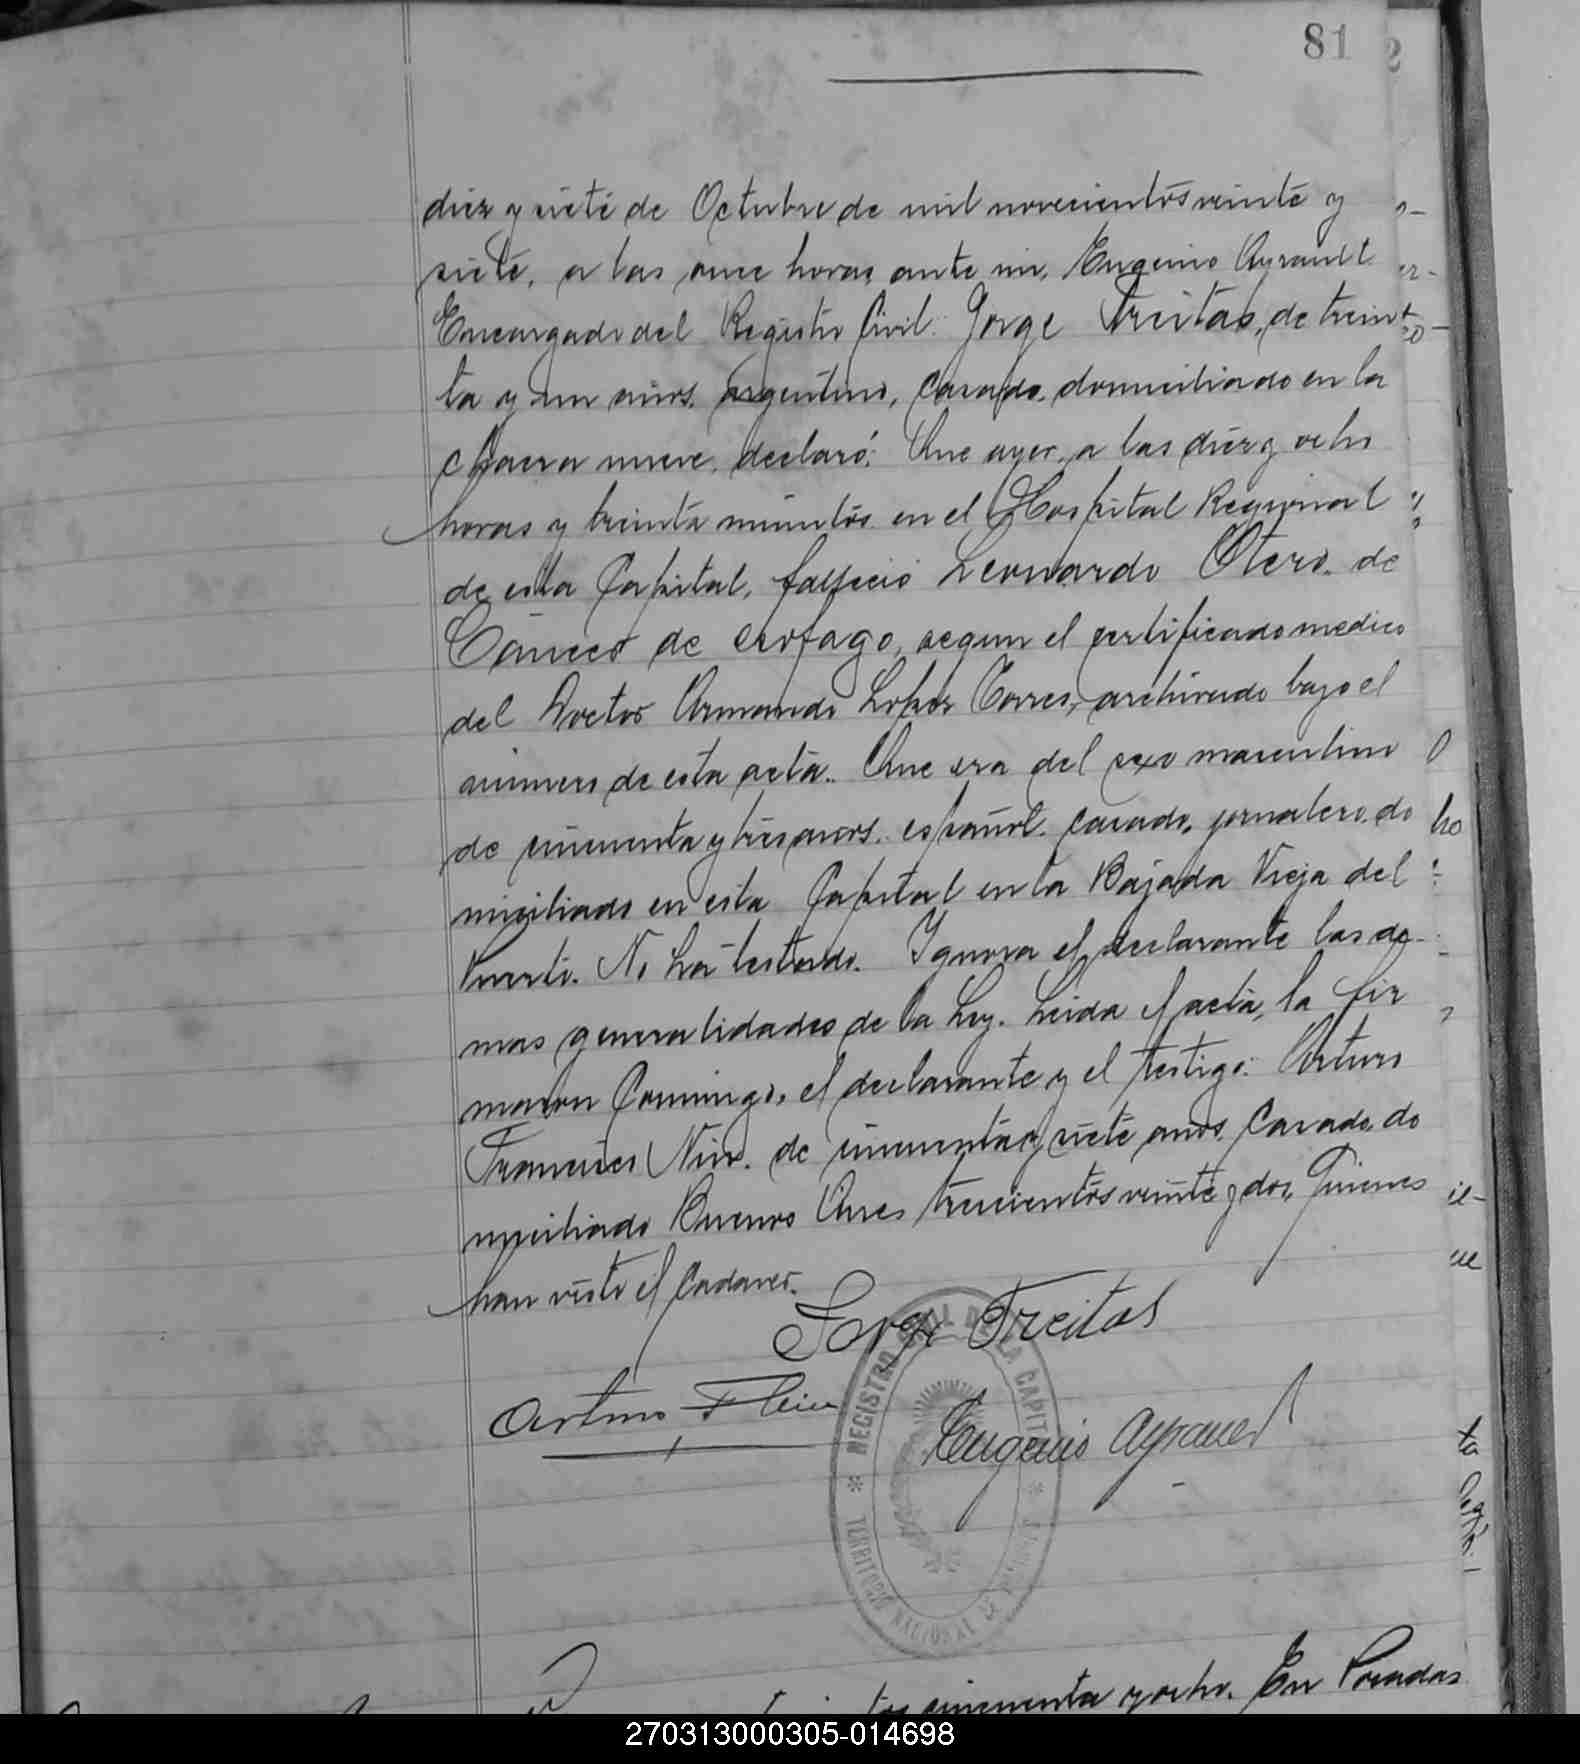 81
diez y siete de Octubre de mil novecientos veinte y
siete, a las once horas, ante mi, Eugenio Ayrault
Encargado del Registro Civil: Jorge Freitas, de trein
ta y un años, argentino, casado, domiciliado en la
chacra nueve, declaró: Que ayer, a las diez y ocho
horas y treinta minutos en el Hospital Regional
de esta Capital, falleció Leonardo Otero, de
Cáncer de esofago, segun el certificado medico
del Doctor Armando Lopez Torres, archivado bajo el
número de esta acta. Que era del sexo masculino
de cincuenta y tres años, español, casado, jornalero, do
miciliado en esta Capital en la Bajada Vieja del
Puerto. No ha testado. Ignora el declarante las de-
mas generalidades de la Ley. Leida el acta, la fir
maron Conmingo, el declarante y el testigo: Arturo
Francisco de cincuenta y siete años, casado, do
miciliado Buenos Aires trescientos veinte y dos, Quienes
han visto el cadaver.
Jorge Freitas
Arturo F
Eugenio Ayrault
REGISTRO CIVIL DE LA CAPITAL
TERRITORIO NACIONAL DE
cincuenta y ocho. En Posadas
270313000305-014698